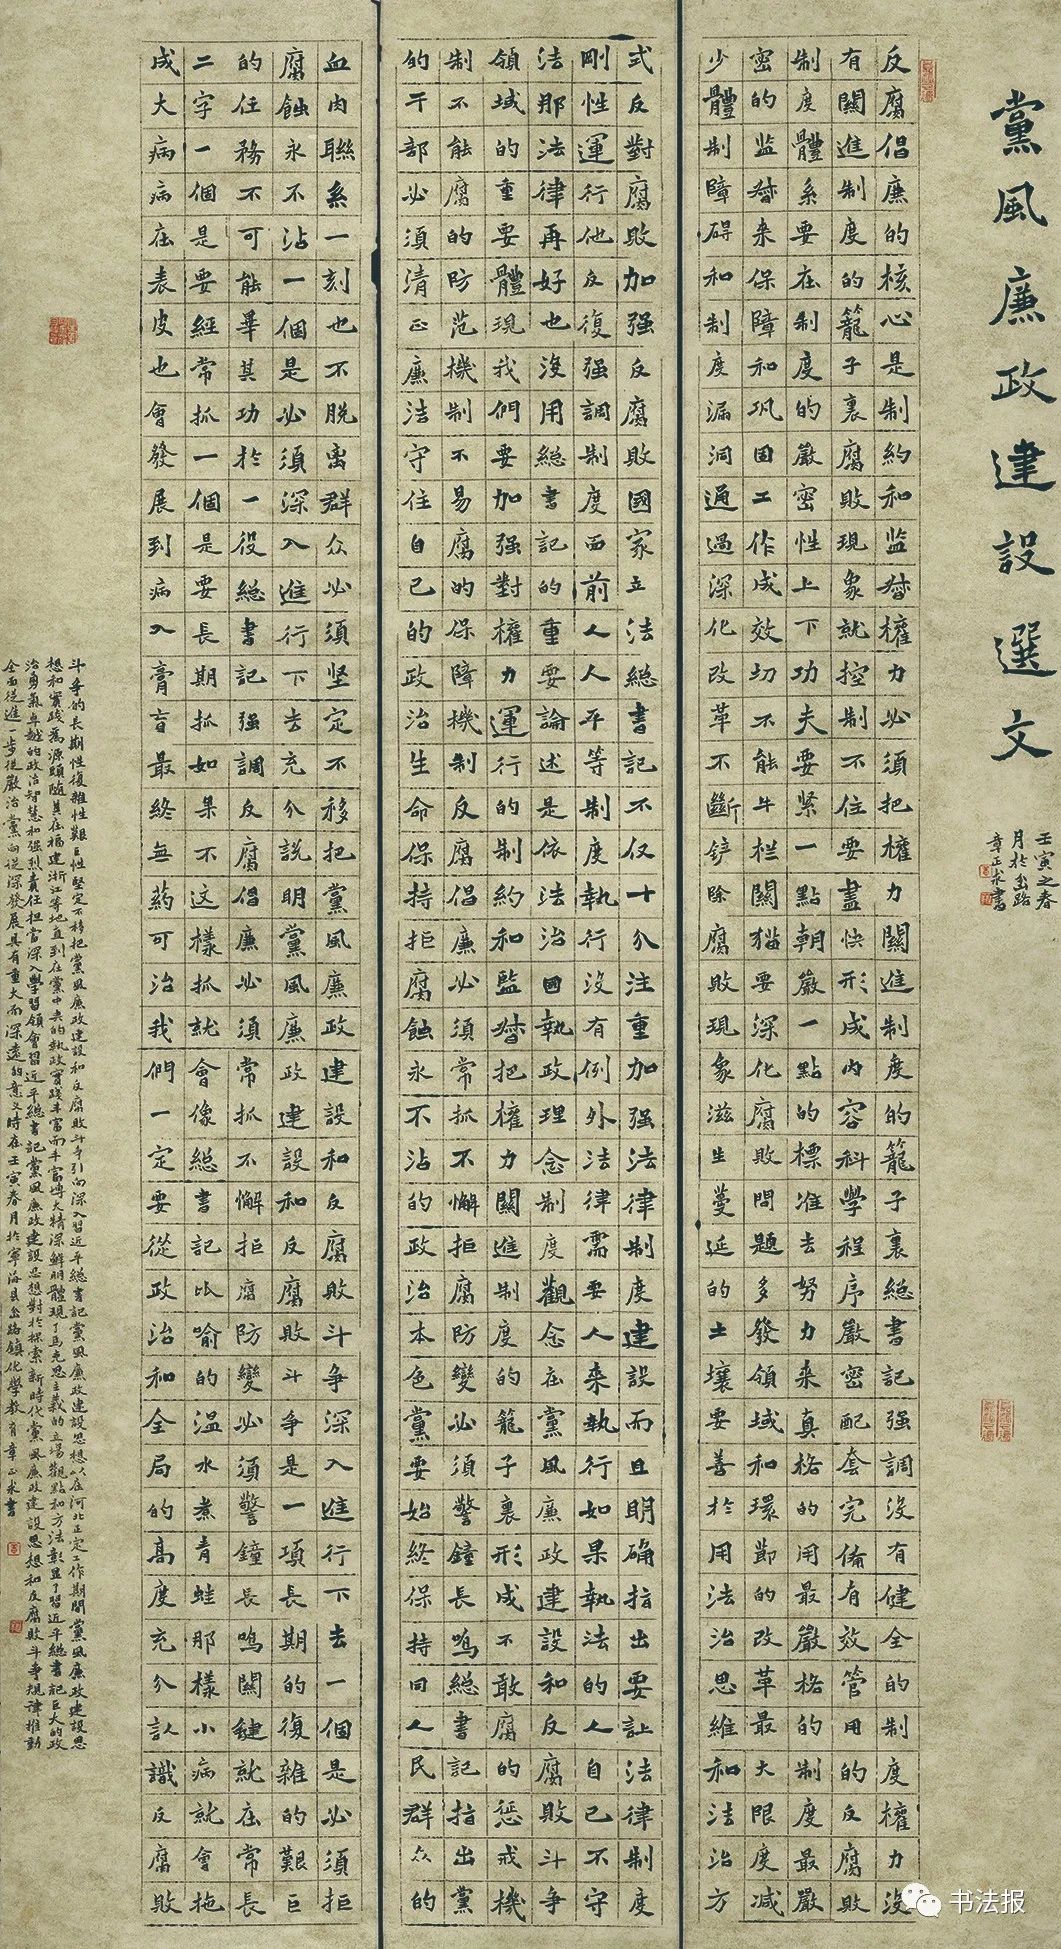 黨風廉政建設選文
壬寅之春
月於岔路
章正求書
反腐倡廉的核心是制約和監督權力必須把權力關進制度的籠子裏總書記强調没有健全的制度權力没
有關進制度的籠子裏腐敗現象就控制不住要盡快形成内容科學程序嚴密配套完備有效管用的反腐敗
制度體系要在制度的嚴密性上下功夫要緊一點朝嚴一點的標准去努力来真格的用最嚴格的制度最嚴
密的监督来保障和巩固工作成效切不能牛栏關猫要深化腐敗問題多發領域和環節的改革最大限度減
少體制障碍和制度漏洞通過深化改革不斷鏟除腐敗現象滋生蔓延的土壤要善於用法治思維和法治方
式反對腐敗加强反腐敗國家立法總書記不仅十分注重加强法律制度建設而且明确指出要让法律制度
剛性運行他反復强調制度面前人人平等制度執行没有例外法律需要人来執行如果執法的人自己不守
法那法律再好也没用總書記的重要論述是依法治國執政理念制度觀念在黨風廉政建設和反腐敗斗争
領域的重要體現我們要加强對權力運行的制約和監督把權力關進制度的籠子裏形成不敢腐的惩戒機
制不能腐的防范機制不易腐的保障機制反腐倡廉必須常抓不懈拒腐防變必須警鐘長鳴總書記指出黨
的干部必須清正廉洁守住自己的政治生命保持拒腐蝕永不沾的政治本色黨要始終保持同人民群众的
血肉聯系一刻也不脱离群众必須坚定不移把黨風廉政建設和反腐敗斗争深入進行下去一個是必須拒
腐蝕永不沾一個是必須深入進行下去充分説明黨風廉政建設和反腐敗斗争是一項長期的復雜的艱巨
的任務不可能畢其功於一役總書記强調反腐倡廉必須常抓不懈拒腐防變必須警鐘長鳴關鍵就在常長
二字一個是要經常抓一個是要長期抓如果不这樣抓就會像總書記比喻的温水煮青蛙那樣小病就會拖
成大病病在表皮也會發展到病入膏肓最終無药可治我們一定要從政治和全局的高度充分認識反腐敗
斗争的長期性復雜性艱巨性堅定不移把黨風廉政建設和反腐敗斗争引向深入習近平總書記黨風廉政建設思想以在河北正定工作期間黨風廉政建設思
想和實踐為源頭随其在福建浙江等地直到在黨中央的執政實踐丰富而丰富博大精深鮮明體現了馬克思主義的立場觀點和方法彰显了習近平總書記巨大的政
治勇氣卓越的政治智慧和强烈責任担當深入學習領會習近平總書記黨風廉政建設思想對於探索新時代黨風廉政建設思想和反腐敗斗争規律推動
全面從進一步從嚴治黨向纵深發展具有重大而深遠的意义時在壬寅春月於寧海县岔路鎮化學教育章正求書
书法报